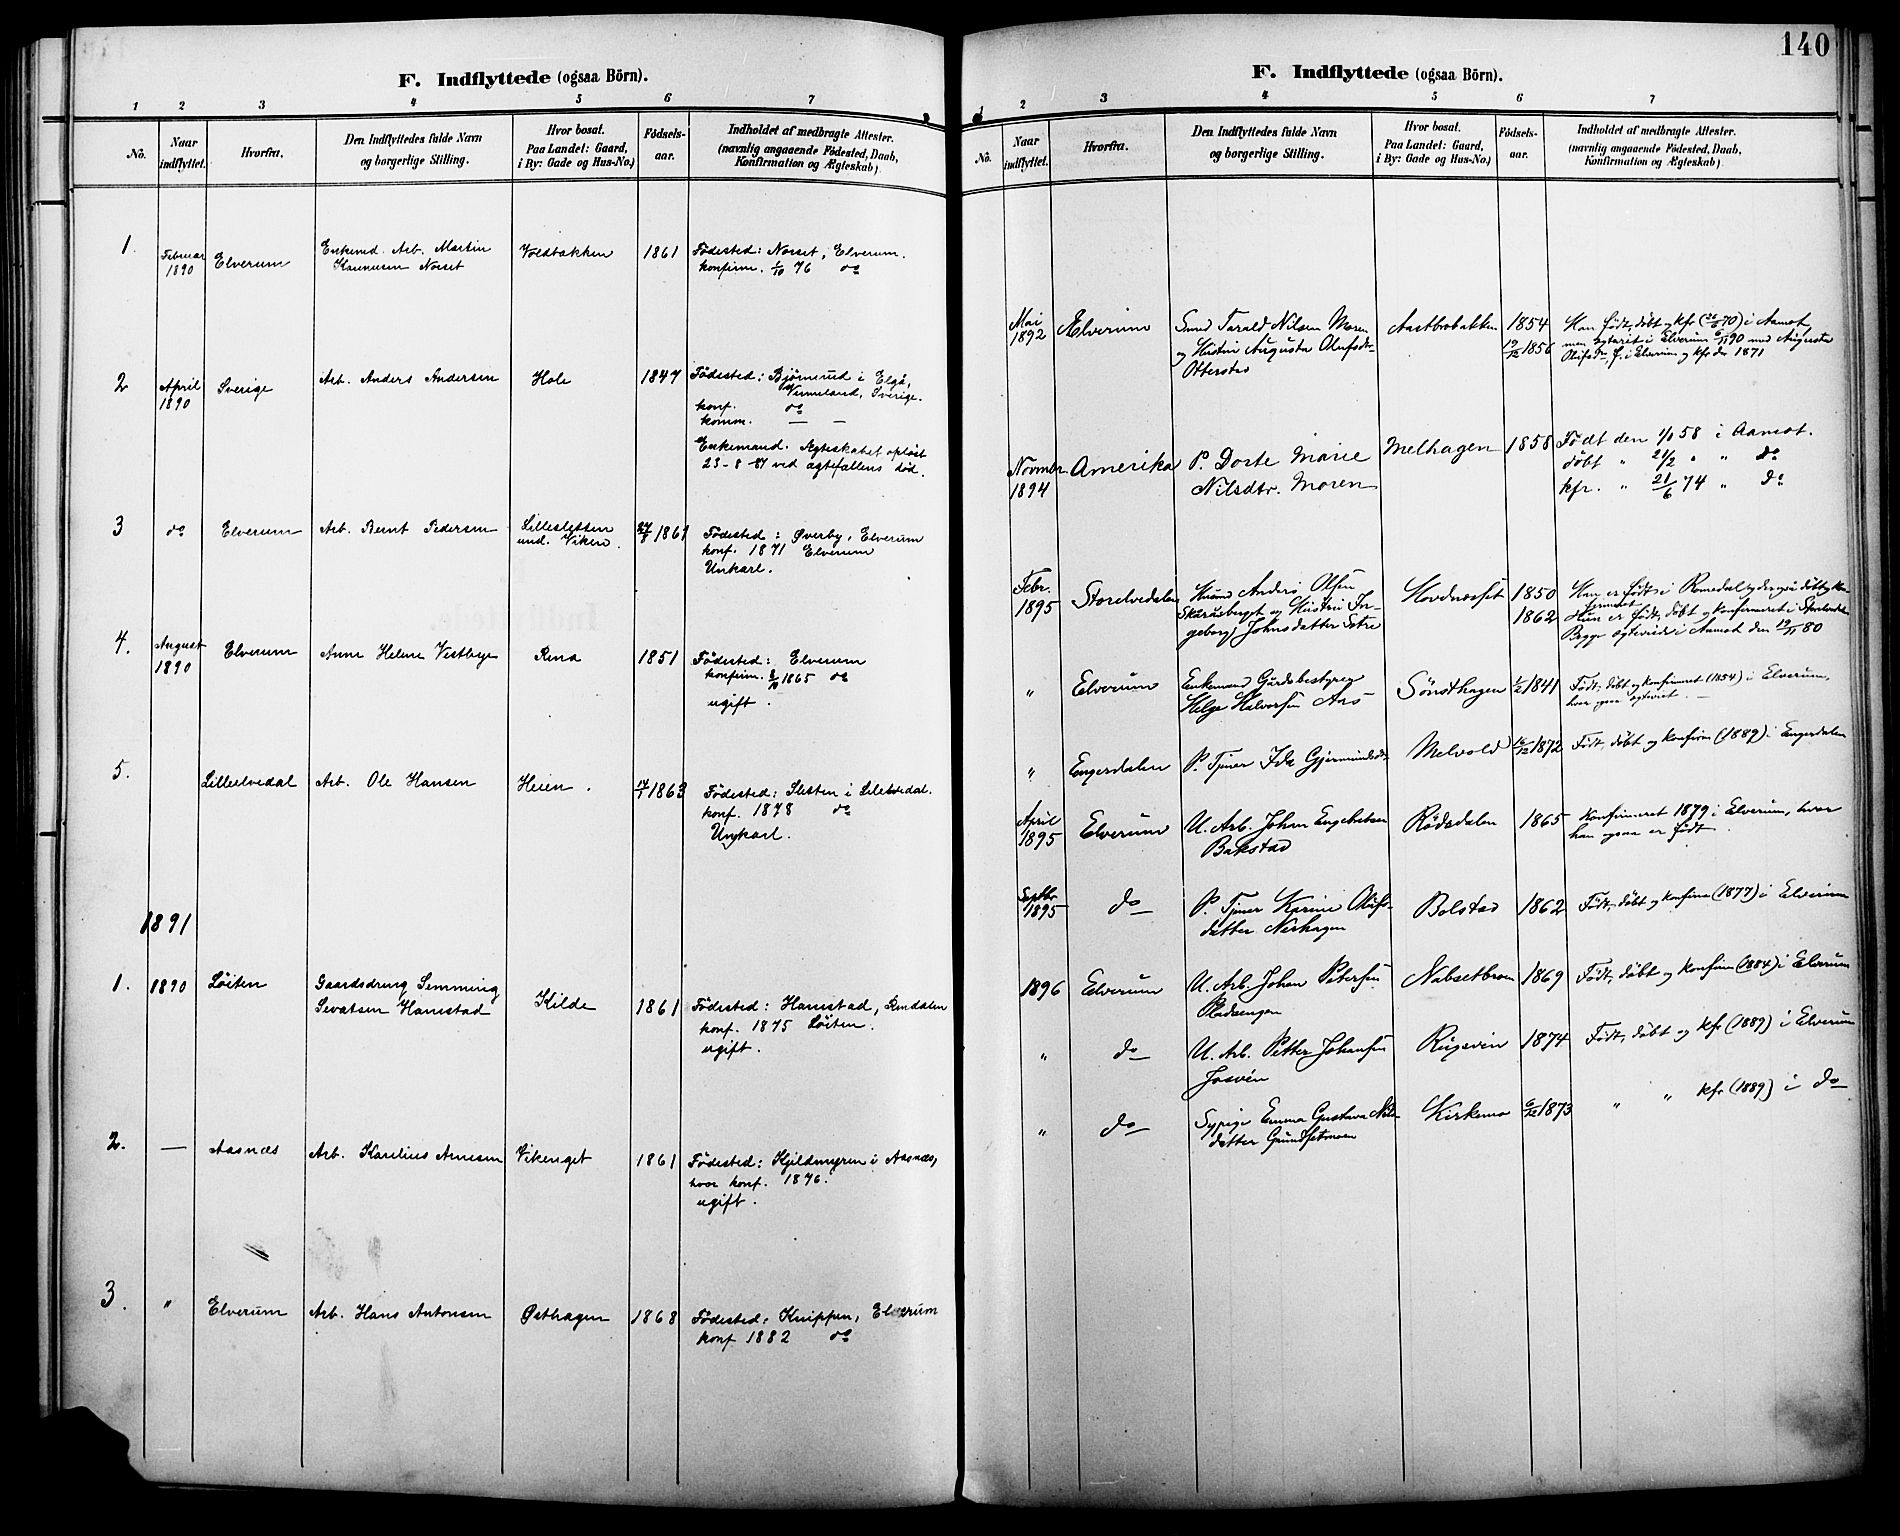 F. Indflyttede (ogsaa Börn).
1 2 3 4 5 6 7
No. Naar indflyttet. Hvorfra. Den Indflyttedes fulde Navn og borgerlige Stilling. Hvor bosat. Paa Landet: Gaard, i By: Gade og Hus-No.) Fødsels-aar. Indholdet af medbragte Attester. (navnlig angaaende Födested, Daab, Konfirmation og Ægteskab)
1. Februar Elverum Enkemd. Arb. Martin Voldbakken 1861 Födested: Norset, Elverum.
1890 Norset konfirm. 1/10 76 do
2 April Sverige Arb. Anders Andersen Hole 1847 Födested: Björnerud i Elgå,
1890 Vermeland, Sverige.
konf. do
komm. — —
Enkemand. Ægteskabet opløst
23-8-87 ved ægtefællens død.
3 do Elverum Arb. Bernt Pedersen Lillesletten 1861 Födested: Øverby, Elverum
und. Viken. konf. 1871 Elverum
Unkarl.
4. August Elverum Anne Helene Vestbye Rena 1851 Födested: Elverum
1890 konfirm. 8/10 1865 do
ugift.
5. Lilleelvedal Arb. Ole Hansen Heien. 1863 Födested: Sletten i Lilelvedal.
konf. 1878 do
Ungkarl.
1891
1. 1890 Löiten Gaardsdreng Semming Kilde 1861 Födested: Hanestad, Rendalen
Sevatsen Hanestad konf. 1875 Löiten.
ugift.
2. — Aasnæs Arb. Karelius Arnesen Vikenget 1861 Födested: Kjeldmyren i Aasnæs,
hvor konf. 1876.
ugift.
3. " Elverum Arb. Hans Antonsen Østhagen 1868 Födested: Knippen, Elverum
konf 1882 do
140
F. Indflyttede (ogsaa Börn).
1 2 3 4 5 6 7
No. Naar indflyttet. Hvorfra. Den Indflyttedes fulde Navn og borgerlige Stilling. Hvor bosat. Paa Landet: Gaard, i By: Gade og Hus-No.) Födsels-aar. Indholdet af medbragte Attester. (navnlig angaaende Födested, Daab, Konfirmation og Ægteskab)
Mai Elverum Smed Tarald Nilsen Moren Aastbrobakken 1854 Han født, døbt og kfr (70) i Aamot,
1892 og Hustru Augusta Olufsdtr. 1856 men ægteviet i Elverum 90 med Augusta
Otterstad Olufsdtr., f. i Elverum og kfr der 1871
Novmbr. Amerika P. Dorte Marie Melhagen 1858 Født den 1/1 58 i Aamot.
1894 Nilsdtr. Moren døbt " 21/2 " " do
kfr. " 21/6 74 " do
Febr. Storelvedalen Anders Olsen Hovdnæsset 1850 Han er født i Romedal
1895 Skaråsberget og Hustru In- 1862 Hun er født, døbt og konfirmeret i Storelvedalen
geborg Johnsdatter Sætre Begge ægteviede i Aamot den 19/11 80
" Elverum Enkemand Gårdsbestyrer Sønsthagen 1/2 1841 Født, døbt og konfirmeret (1854) i Elverum,
Helge Halvorsen Aas hvor ogsaa ægteviet. —
" Engerdalen P. Tjener Ida Gjermundsdtr Melvold 1872 Født, døbt og konfirm (1889) i Engerdalen
April Elverum U. Arb. Johan Engebretsen Rødsdalen 1865 Konfirmeret 1879 i Elverum, hvor
1895 Bakstad han ogsaa er født.
Septbr. do P. Tjener Karine Olufs- Bolstad 1862 Født, døbt og konfirm (1877) i Elverum
1895 datter Nerhagen
1896 Elverum U. Arb. Johan Petersen Nabsetbroen 1869 Født, døbt og konfirm (1884) i Elverum
Pladsengen
" do U. Arb. Petter Johansen Rugsvèn 1874 Født, døbt og kfr (1889) i Elverum
" do Sypige Emma Gustava Nils- Kirkemo 6/12 1873 " " kfr (1889) i do
datter Grundsetmoen